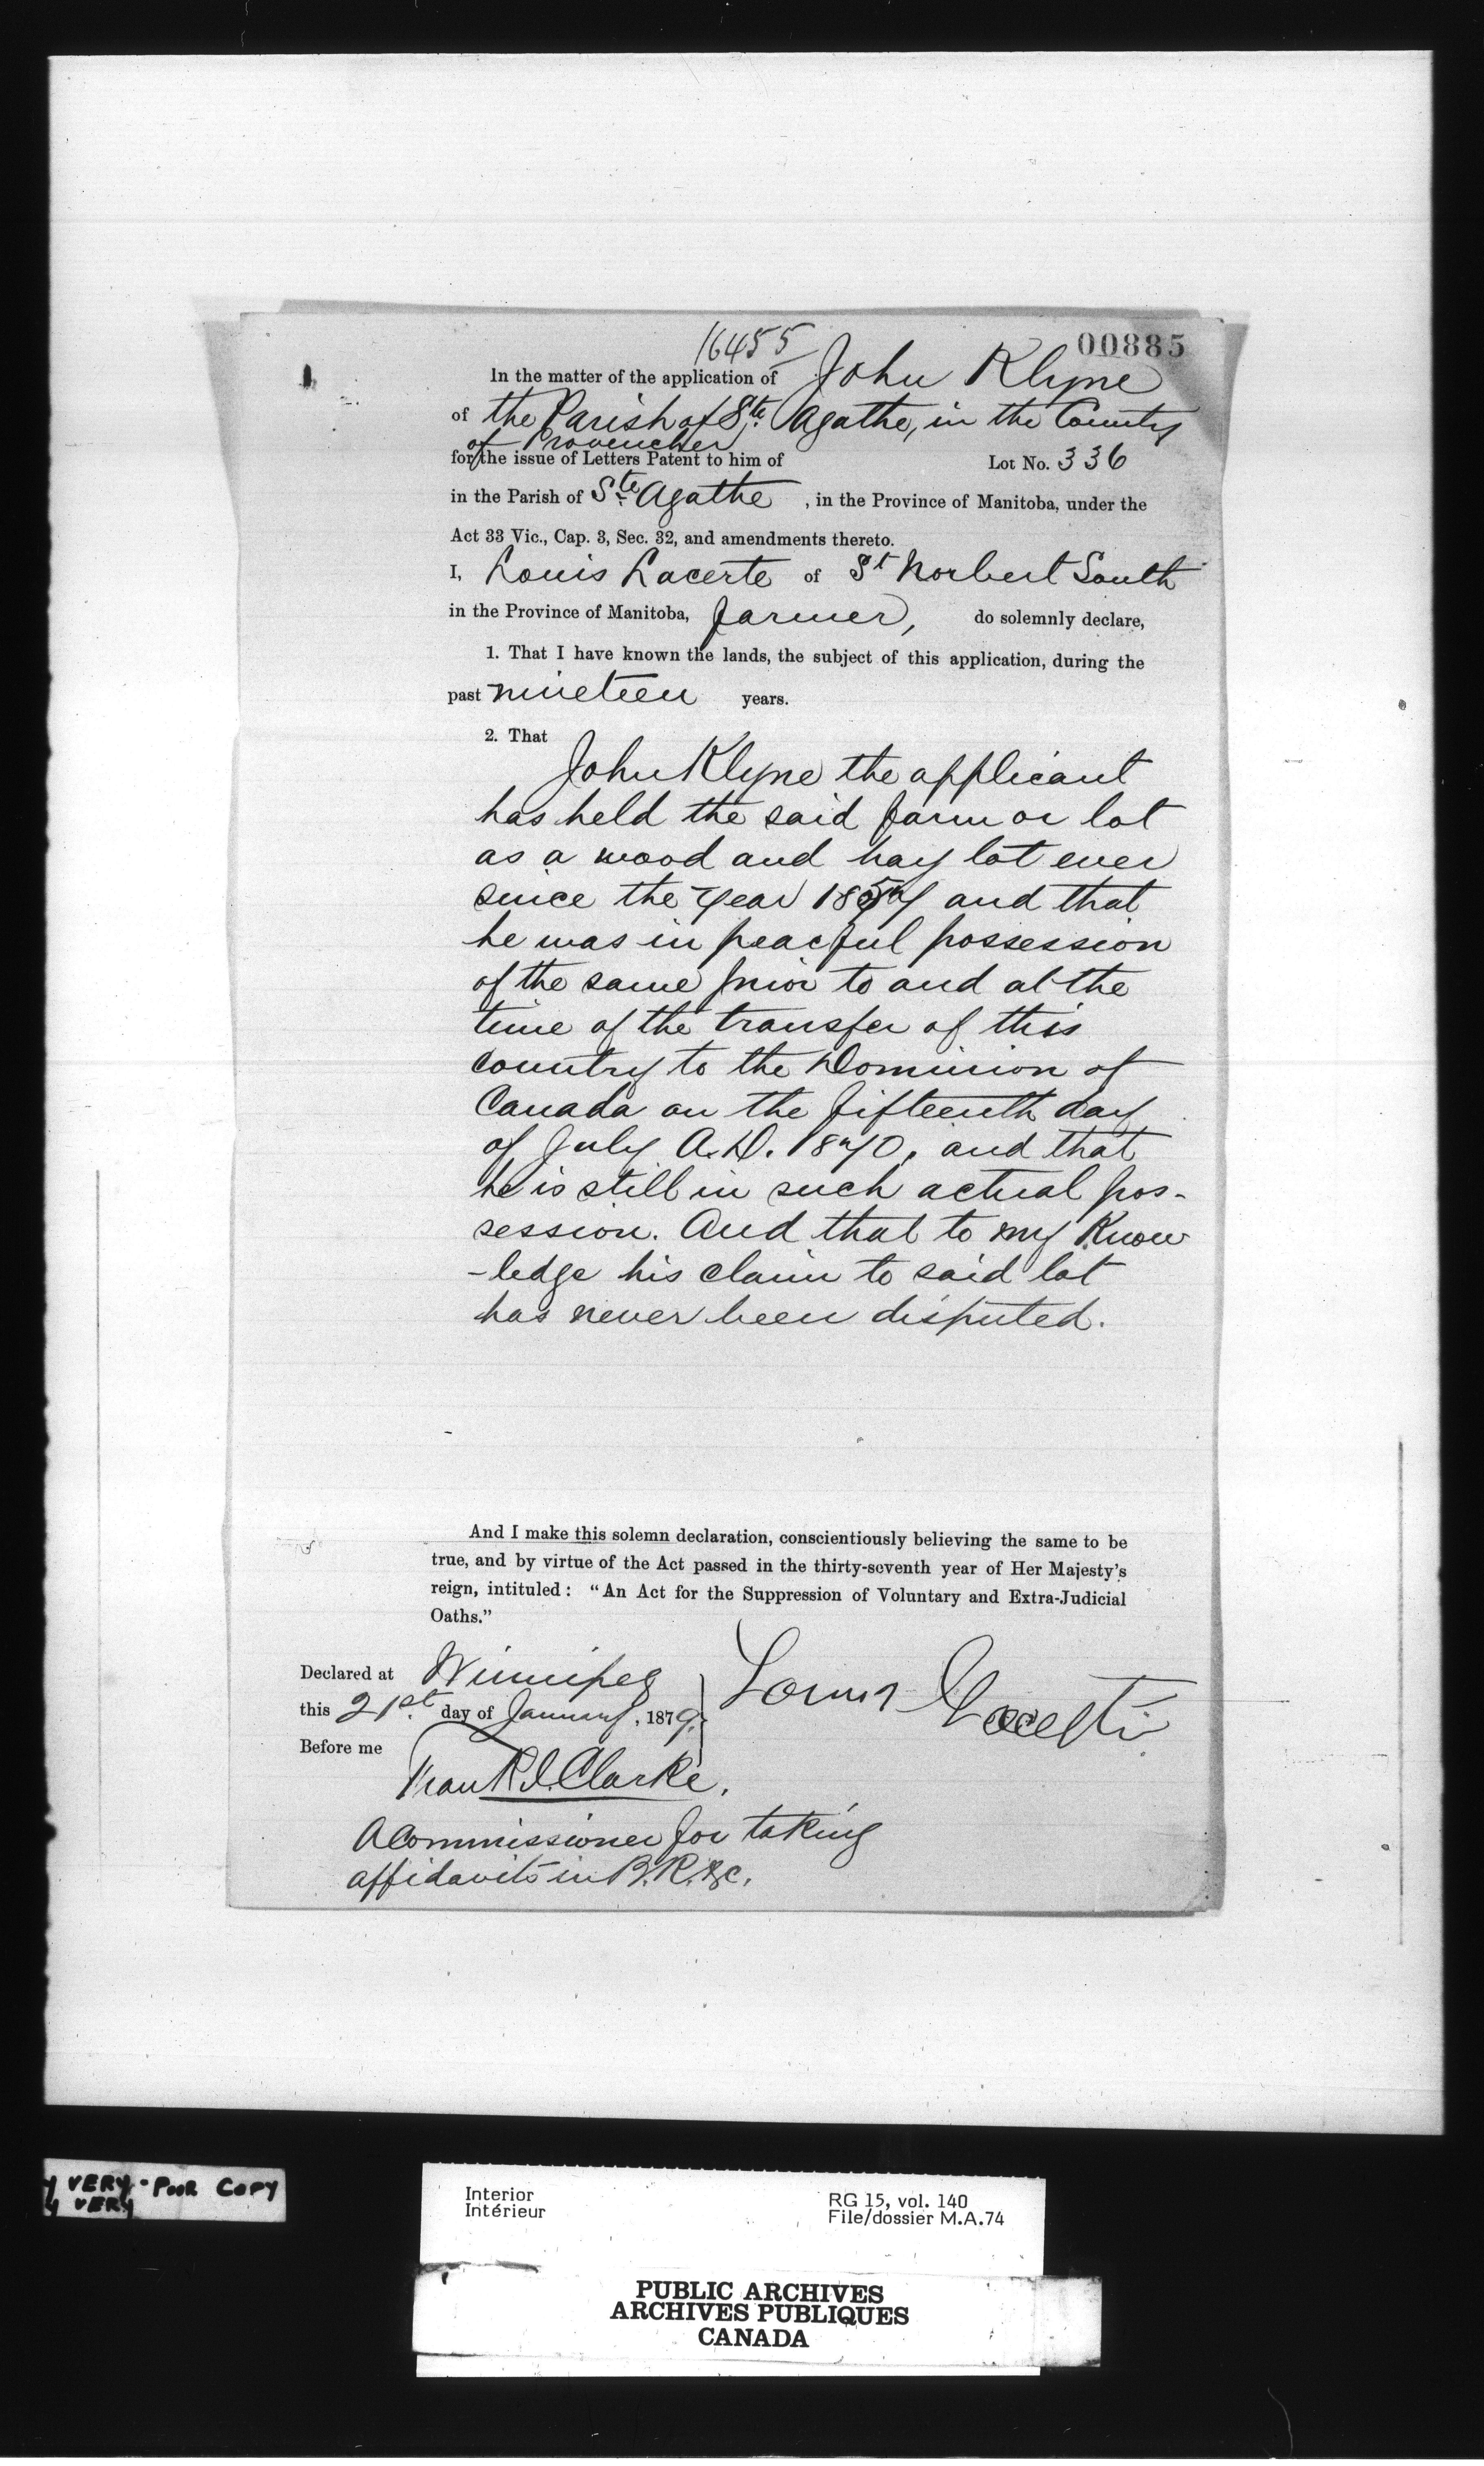 16455
00885
In the matter of the application of John Klyne
of the Parish of Ste. Agathe, in the County
of Provencher
for the issue of Letters Patent to him of Lot No. 336
in the Parish of Ste. Agathe, in the Province of Manitoba, under the
Act 33 Vic., Cap. 3, Sec. 32, and amendments thereto.
I, Louis Lacerte of St Norbert South
in the Province of Manitoba, farmer, do solemnly declare,
1. That I have known the lands, the subject of this application, during the
past nineteen years.
2. That
John Klyne the applicant
has held the said farm or lot
as a wood and hay lot ever
since the year and that
he was in peacful possession
of the same prior to and at the
time of the transfer of this
country to the Dominion of
Canada on the fifteenth day
of July A.D. 1870, and that
he is still in such actual pos-
session. And that to my Know
-ledge his claim to said lot
has never been disputed.
And I make this solemn declaration, conscientiously believing the same to be
true, and by virtue of the Act passed in the thirty-seventh year of Her Majesty's
reign, intituled: "An Act for the Suppression of Voluntary and Extra-Judicial
Oaths."
Declared at Winnipeg
this 21st. day of January, 1879.
Louis Lacerte
Before me
Frank I. Clarke.
A Commissioner for taking
affidavits in B.R. &c.
VERY-POOR COPY
VERY
Interior
Intérieur
RG 15, vol. 140
File/dossier M.A.74
PUBLIC ARCHIVES
ARCHIVES PUBLIQUES
CANADA